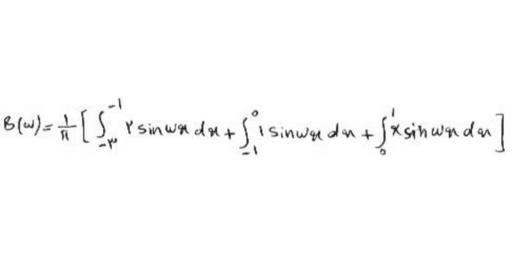 B(ω) = 1/π [ ∫_{-۳}^{-1} ۲ sinωx dx + ∫_{-1}^{0} 1 sinωx dx + ∫_{0}^{1} x sinωx dx ]